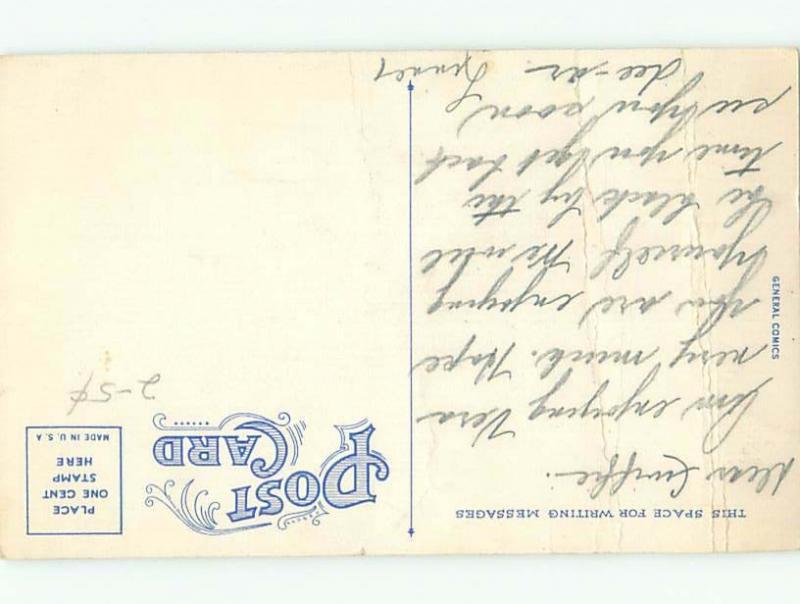 THIS SPACE FOR WRITING MESSAGES
Dear
Am enjoying Vera
very much. Hope
you are enjoying
yourself. He will
be black by the
time you get back
see you soon
Dee-ar.
POST CARD
PLACE
ONE CENT
STAMP
HERE
MADE IN U.S.A
2-5¢
GENERAL COMICS